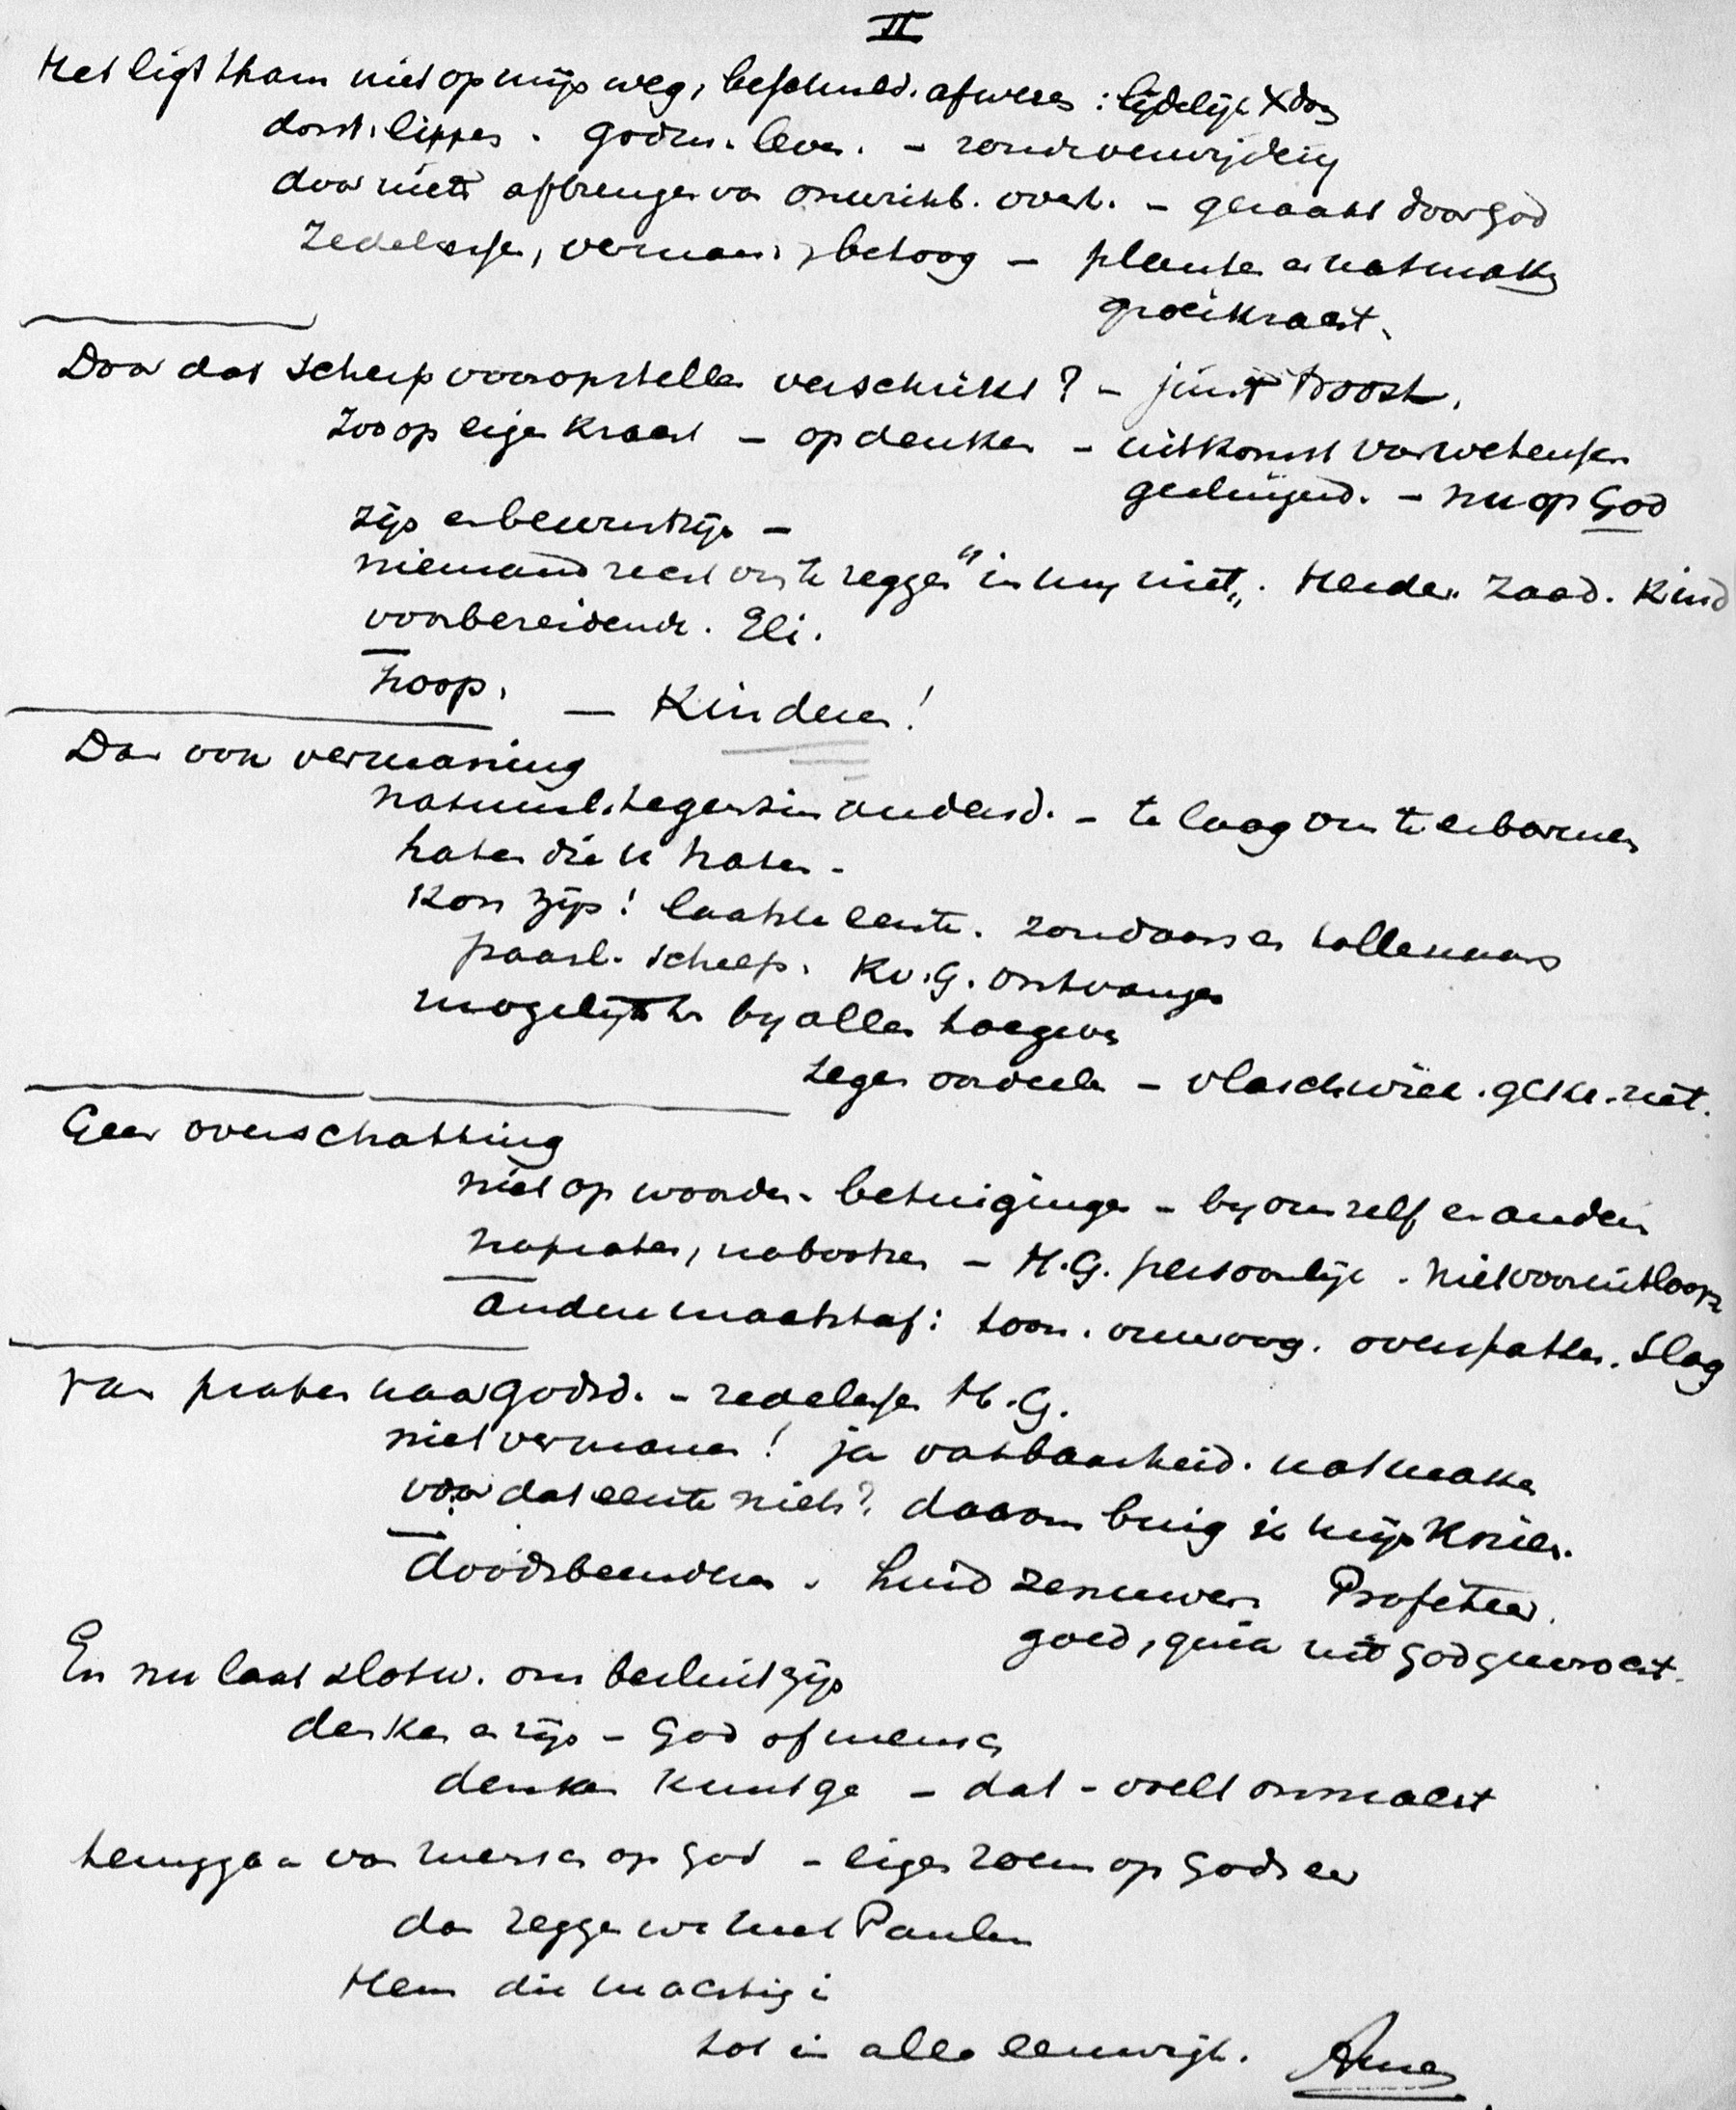 II
Het ligt thans niet op mijn weg, beschuld. afweren : lijdelijk
dorst. lippen. godsd. leven. –
door niets afbrengen van onwrikb. overt. – geraakt door God
Zedelessen, verman., betoog – planten en natmaken
groeikracht.
Door dat scherp vooropstellen verschrikt? – juist troost.
Zoo op eigen kracht – op denken – uitkomst van wetensch.
– nu op God
zijn en bewustzijn –
niemand recht om te zeggen "in hem niet". Herder. Zaad. Kind
voorbereidende. Eli.
hoop. – Kinderen!
Dan ook vermaning
natuurl. tegenzin anderd. – te laag om te erbarmen
haten die U haten –
Kon zijn! laatste eerste. zondaars en tollenaars
paarl. schelp. K.v.G. ontvangen
mogelijkh. by allen toegeven
tegen oordeelen – vlaschwiek. gekr. riet.
Geen overschatting
niet op woorden – betuigingen – by ons zelf en anderen
napraten, nabootsen – H.G. persoonlijk. niet vooruitloopen
andere maatstaf: toon. oneoog. overspatten. slag
Van praten naar godsd. – zedelessen H.G.
niet vermanen! ja vatbaarheid. natmaken
voor dat eerste niets? daarom buig ik mijn Knieën.
doodsbeenderen. huid zenuwen Profeteer.
goed, quia uit God gewrocht.
En nu laat slotw. ons besluit zijn
denken en zijn – God of mensch
denken Kunt ge – dat – voelt onmacht
teruggaan van mensch op God – eigen roem op Gods eer
dan zeggen we met Paulus
Hem die machtig is
tot in alle eeuwigh. Amen